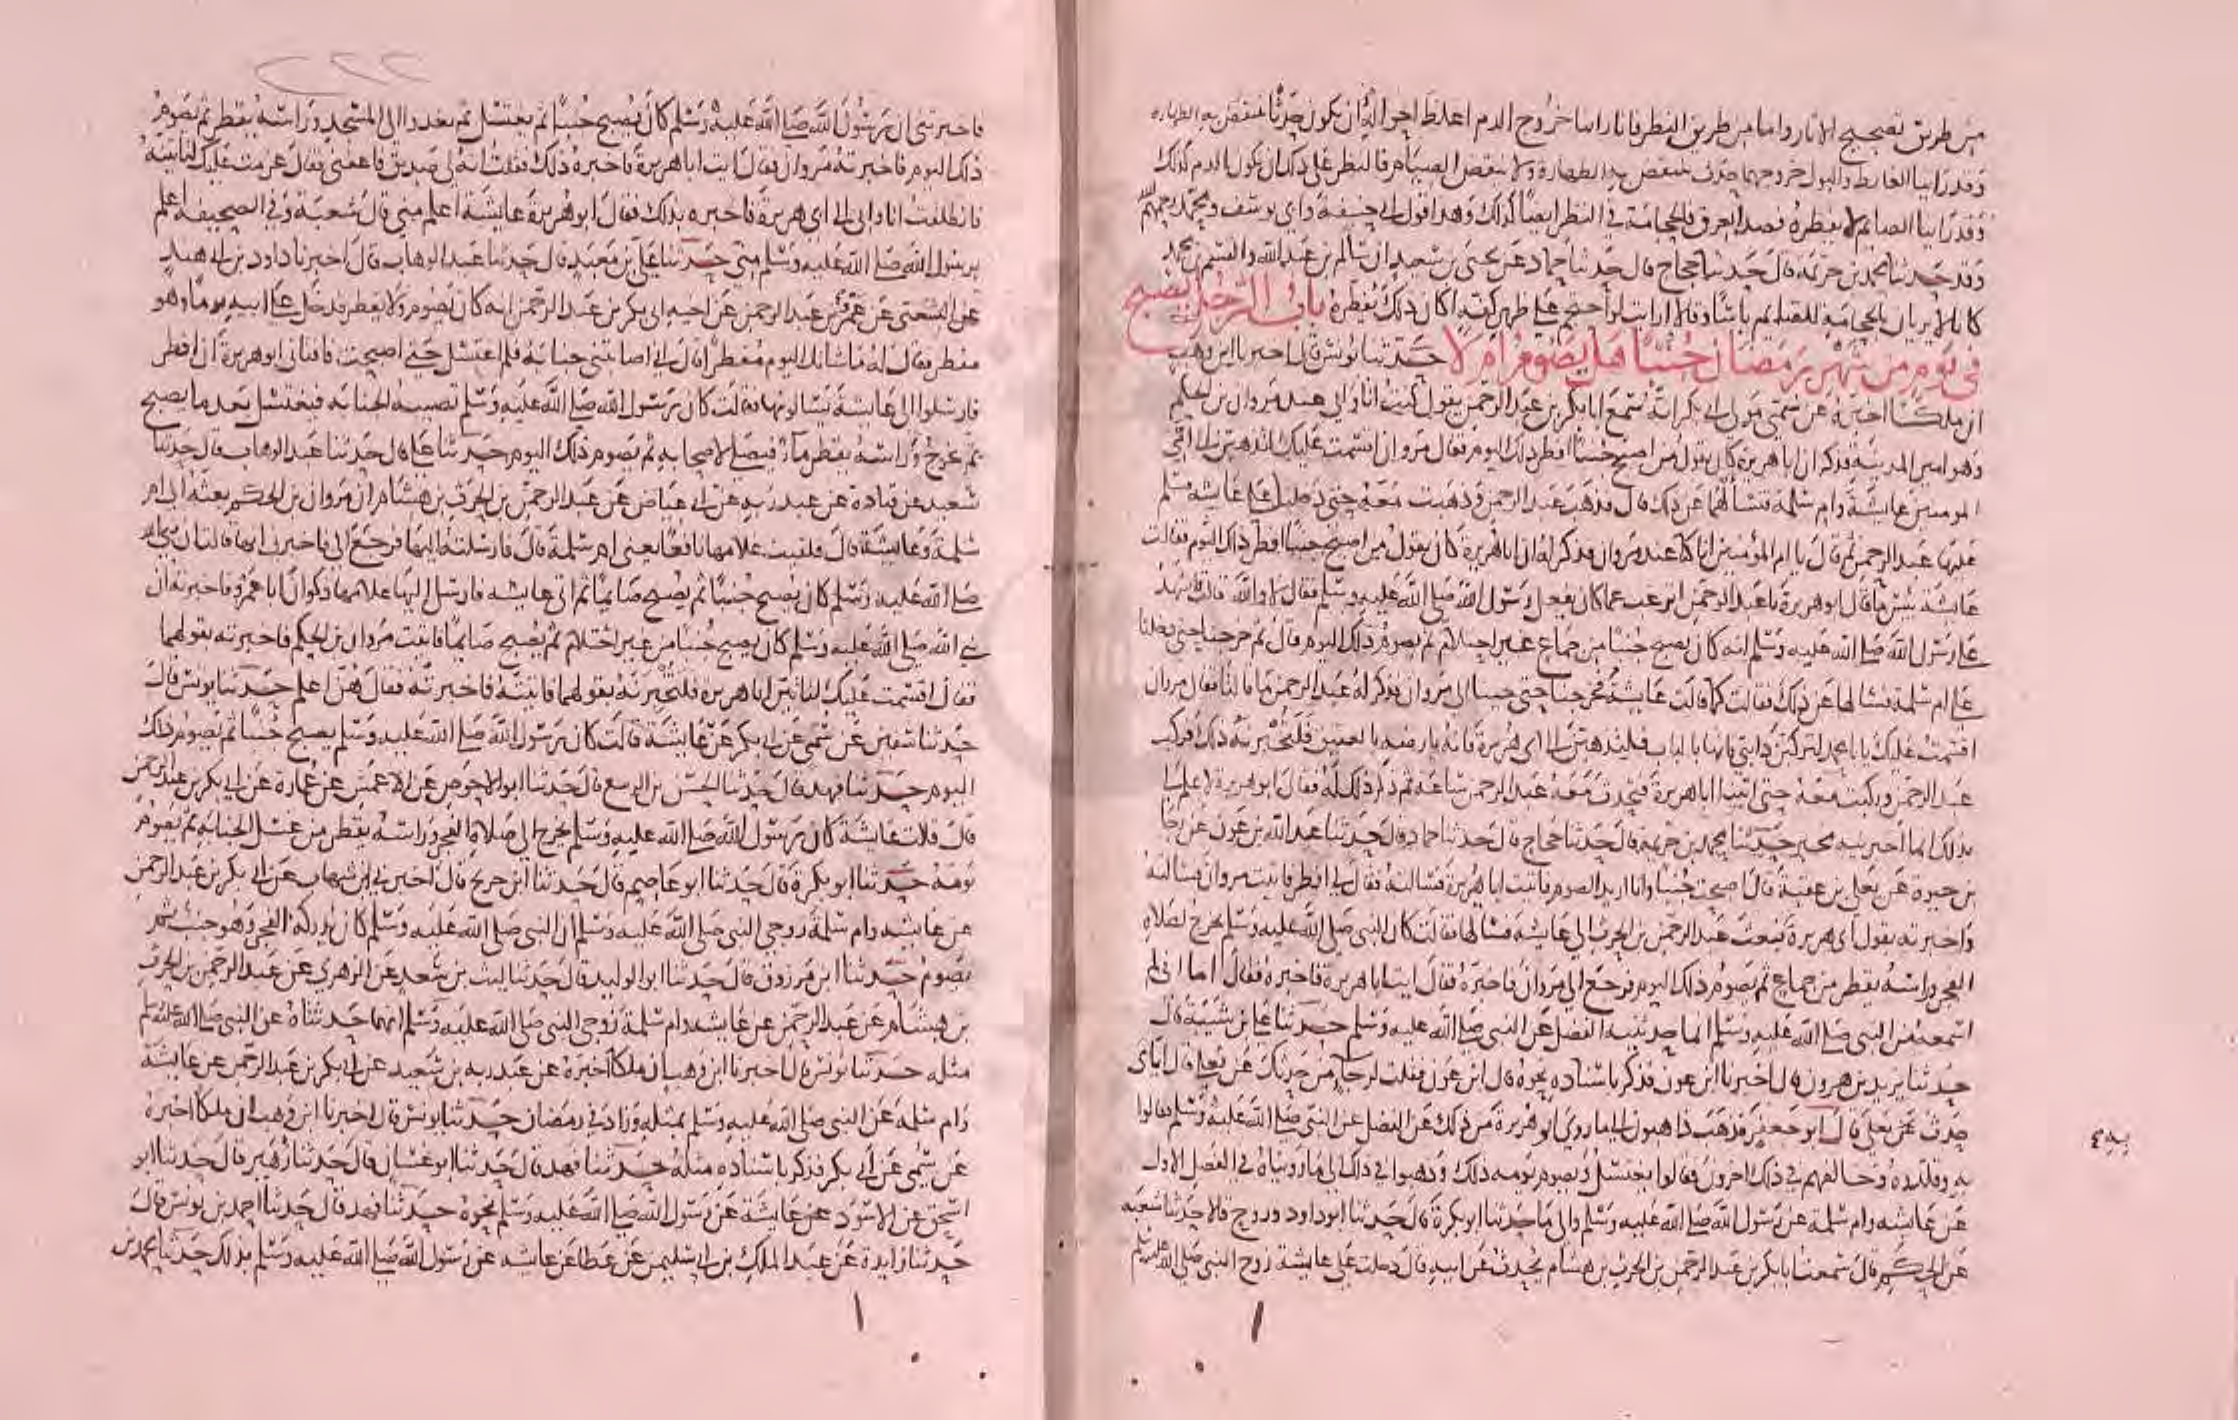 من طريق تصحيح الاثار واما من طريق النظر فانا راينا خروج الدم اغلظ احواله ان يكون حدثا ينتقض به الطهارة
وقد راينا الغايط والبول خروجهما حدث ينتقض به الطهارة ولا ينقض الصيام فالنظر على ذلك ان يكون الدم كذلك
وقد راينا الصايم لا يفطره فصد العرق فالحجامة في النظر ايضا كذلك وهذا قول ابي حنيفة وابي يوسف ومحمد رحمهم الله
وقد حدثنا محمد بن خزيمة قال حدثنا حجاج قال حدثنا حماد عن يحيى بن سعيد ان سالم بن عبد الله والقسم بن محمد
كانا لا يريان بالحجامة للصايم باسا وقالا ارايت لو احتجم على ظهر كفه اكان ذلك يفطره باب الرجل يصبح
في يوم من شهر رمضان جنبا هل يصوم ام لا حدثنا يونس قال اخبرنا ابن وهب
ان ملكا اخبره عن سمي مولى ابي بكر انه سمع ابا بكر بن عبد الرحمن يقول كنت انا وابي عند مروان بن الحكم
وهو امير المدينة فذكر ان ابا هريرة كان يقول من اصبح جنبا افطر ذلك اليوم فقال مروان اقسمت عليك لتذهبن الى امي
المومنين عايشة وام سلمة فتسالهما عن ذلك قال فذهب عبد الرحمن وذهبت معه حتى دخلنا على عايشة فسلم
عليها عبد الرحمن ثم قال يا ام المؤمنين انا كنا عند مروان فذكر له ان ابا هريرة كان يقول من اصبح جنبا افطر ذلك اليوم فقالت
عايشة بئس ما قال ابو هريرة يا عبد الرحمن اترغب عما كان يفعل رسول الله صلى الله عليه وسلم فقال لا والله قالت فاشهد
على رسول الله صلى الله عليه وسلم انه كان يصبح جنبا من جماع غير احتلام ثم يصوم ذلك اليوم قال ثم خرجنا حتى دخلنا
على ام سلمة فسالها عن ذلك فقالت كما قالت عايشة فخرجنا حتى جينا الى مروان فذكر له عبد الرحمن ما قالتا فقال مروان
اقسمت عليك يا با محمد لتركبن دابتي فانها بالباب فلتذهبن الى ابي هريرة فانه بارضه بالعقيق فلتخبرنه ذلك فركب
عبد الرحمن وركبت معه حتى اتينا ابا هريرة فتحدث معه عبد الرحمن ساعة ثم ذكر ذلك له فقال ابو هريرة لا علم لي
بذلك انما اخبرنيه مخبر حدثنا محمد بن خزيمة قال حدثنا حجاج قال حدثنا حماد قال حدثنا عبد الله بن عون عن رجا
بن حيوة عن يعلى بن عقبة قال اصبحت جنبا وانا اريد الصوم فاتيت ابا هريرة فسالته فقال لي افطر فاتيت مروان فسالته
واخبرته بقول ابي هريرة فبعث عبد الرحمن بن الحرث الى عايشة فسالها فقالت كان النبي صلى الله عليه وسلم يخرج لصلاة
الفجر وراسه يقطر من جماع ثم يصوم ذلك اليوم فرجع الى مروان فاخبره فقال ايت ابا هريرة فاخبره فقال اما اني لم
اسمعه من النبي صلى الله عليه وسلم انما حدثنيه الفضل عن النبي صلى الله عليه وسلم حدثنا علي بن شيبة قال
حدثنا يزيد بن هرون قال اخبرنا ابن عون فذكر باسناده نحوه قال ابن عون فقلت لرجا من حدثك عن يعلى قال اياي
حدث عن يعلى قال ابو جعفر فذهب ذاهبون الى ما روى ابو هريرة من ذلك عن الفضل عن النبي صلى الله عليه وسلم فقالوا
به وقلدوه وخالفهم في ذلك اخرون فقالوا يغتسل ويصوم يومه ذلك وذهبوا في ذلك الى ما رويناه في الفصل الاول
عن عايشة وام سلمة عن رسول الله صلى الله عليه وسلم والى ما حدثنا ابو بكرة قال حدثنا ابو داود وروح قالا حدثنا شعبة
عن الحكم قال سمعت ابا بكر بن عبد الرحمن بن الحرث بن هشام يحدث عن ابيه قال دخلت على عايشة زوج النبي صلى الله عليه وسلم
٢٢٢
فاخبرتني ان رسول الله صلى الله عليه وسلم كان يصبح جنبا ثم يغتسل ثم يغدوا الى المسجد وراسه يقطر ثم يصوم
ذلك اليوم فاخبرته مروان فقال ايت ابا هريرة فاخبره ذلك فقلت انه لي صديق فاعفني فقال عزمت عليك لتاتينه
فانطلقت انا وابي الى ابي هريرة فاخبره بذلك فقال ابو هريرة عايشة اعلم مني قال شعبة وفي الصحيفة اعلم
برسول الله صلى الله عليه وسلم مني حدثنا علي بن معبد قال حدثنا عبد الوهاب قال اخبرنا داود بن ابي هند
عن الشعبي عن عمر بن عبد الرحمن عن اخيه ابي بكر بن عبد الرحمن انه كان يصوم ولا يفطر فدخل على ابيه يوما وهو
مفطر فقال له ما شانك اليوم مفطرا قال اني اصابتني جنابة فلم اغتسل حتى اصبحت فافتاني ابو هريرة ان افطر
فارسلوا الى عايشة يسالونها فقالت كان رسول الله صلى الله عليه وسلم تصيبه الجنابة فيغتسل بعد ما يصبح
ثم يخرج وراسه يقطر ماء فيصلي لاصحابه ثم يصوم ذلك اليوم حدثنا علي قال حدثنا عبد الوهاب قال حدثنا
سعيد عن قتادة عن عبد ربه عن ابي عياض عن عبد الرحمن بن الحرث بن هشام ان مروان بن الحكم بعثه الى ام
سلمة وعايشة قال فلقيت غلامها نافعا يعني ام سلمة قال فارسلته اليها فرجع الي فاخبرني انها قالت ان نبي الله
صلى الله عليه وسلم كان يصبح جنبا ثم يصبح صايما ثم اتى عايشة فارسل اليها غلامها ذكوان ابا عمرو فاخبرته ان
نبي الله صلى الله عليه وسلم كان يصبح جنبا من غير احتلام ثم يصبح صايما فاتيت مروان بن الحكم فاخبرته بقولهما
فقال اقسمت عليك لتاتين ابا هريرة فلتخبرنه بقولهما فاتيته فاخبرته فقال هن اعلم حدثنا يونس قال
حدثنا سفين عن سمي عن ابي بكر عن عايشة قالت كان رسول الله صلى الله عليه وسلم يصبح جنبا ثم يصوم ذلك
اليوم حدثنا فهد قال حدثنا الحسن بن الربيع قال حدثنا ابو الاحوص عن الاعمش عن عمارة عن ابي بكر بن عبد الرحمن
قال قالت عايشة كان رسول الله صلى الله عليه وسلم يخرج الى صلاة الفجر وراسه يقطر من غسل الجنابة ثم يصوم
يومه حدثنا ابو بكرة قال حدثنا ابو عاصم قال حدثنا ابن جريج قال اخبرني ابن شهاب عن ابي بكر بن عبد الرحمن
عن عايشة وام سلمة زوجي النبي صلى الله عليه وسلم ان النبي صلى الله عليه وسلم كان يدركه الفجر وهو جنب ثم
يصوم حدثنا ابن مرزوق قال حدثنا ابو الوليد قال حدثنا ليث بن سعد عن الزهري عن عبد الرحمن بن الحرث
بن هشام عن عبد الرحمن عن عايشة وام سلمة زوجي النبي صلى الله عليه وسلم انهما حدثتاه عن النبي صلى الله عليه وسلم
مثله حدثنا يونس قال اخبرنا ابن وهب ان ملكا اخبره عن عبد ربه بن سعيد عن ابي بكر بن عبد الرحمن عن عايشة
وام سلمة عن النبي صلى الله عليه وسلم بمثله وزاد في رمضان حدثنا يونس قال اخبرنا ابن وهب ان ملكا اخبره
عن سمي عن ابي بكر فذكر باسناده مثله حدثنا فهد قال حدثنا ابو غسان قال حدثنا زهير قال حدثنا ابو
اسحق عن الاسود عن عايشة عن رسول الله صلى الله عليه وسلم نحوه حدثنا فهد قال حدثنا احمد بن يونس قال
حدثنا زايدة عن عبد الملك بن ابي سليمن عن عطا عن عايشة عن رسول الله صلى الله عليه وسلم بذلك حدثنا محمد بن